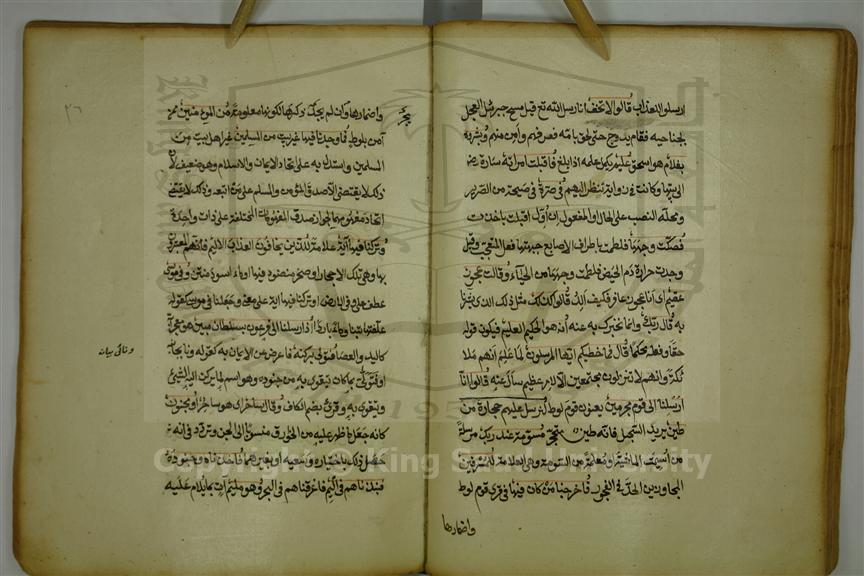 ارسلوا للعذاب قالوا لا تخف انا رسل الله تع قيل مسح جبرئيل العجل
بجناحيه فقام يدرج حتى لحق بامه فعرفهم وامن منهم وبشروه
بغلام هو اسحق عليم يكمل علمه اذا بلغ فاقبلت امراته سارة رض
الى بيتها وكانت في زاوية تنظر اليهم في صرة في صيحة من الصرير
ومحله النصب على الحال او المفعول ان اول اقبلت باخذت
فصكت وجهها فلطمت باطراف الاصابع جبهتها فعل المتعجب وقيل
وجدت حرارة دم الحيض فلطمت وجهها من الحياء وقالت عجوز
عقيم اي انا عجوز عاقر فكيف الد قالوا كذلك مثل ذلك الذي بشرنا
به قال ربك وانما نخبرك به عنه انه هو الحكيم العليم فيكون قوله
حقا وفعله محكما قال فما خطبكم ايها المرسلون لما علم انهم ملا
ئكة وانهم لا ينزلون مجتمعين الا لامر عظيم سأل عنه قالوا انا
ارسلنا الى قوم مجرمين يعنون قوم لوط لنرسل عليهم حجارة من
طين يريد السجيل فانه طين متحجر مسومة عند ربك مرسلة
من اسمت الماشية او معلمة من السومة وهي العلامة للمسرفين
المجاوزين الحد في الفجور فاخرجنا من كان فيها في قرى قوم لوط
واضمارها
واضمارها وان لم يجر ذكرها لكونها معلومة من المؤمنين ممن
آمن بلوط فما وجدنا فيها غير بيت من المسلمين غير اهل بيت من
المسلمين واستدل به على اتحاد الايمان والاسلام وهو ضعيف لان
ذلك لا يقتضي الا صدق المؤمن والمسلم على من اتبعه وذلك لا يقتضي
اتحاد مفهوميهما لجواز صدق المفهومات المختلفة على ذات واحدة
وتركنا فيها آية علامة للذين يخافون العذاب الاليم فانهم المعتبرون
بها وهي تلك الاحجار او صخر منضود فيها او ماء اسود منتن وفي موسى
عطف على وفي الارض او تركنا فيها آية على معنى وجعلنا في موسى كقوله
علفتها تبنا وماء باردا اذ ارسلناه الى فرعون بسلطان مبين هو معجزاته
كاليد والعصا فتولى بركنه فاعرض من الايمان به كقوله ونأى بجانبه
او فتولى بما كان يتقوى به من جنوده وهو اسم لما يركن اليه الشيء
ويتقوى به وقرئ بضم الكاف وقال ساحر اي هو ساحر او مجنون
كانه جعل ما ظهر عليه من الخوارق منسوبا الى الجن وتردد في انه
حصل ذلك باختياره وسعيه او بغيرهما فاخذناه وجنوده
فنبذناهم في اليم فاغرقناهم في البحر وهو مليم آت بما يلام عليه
٢٦
Copyright © King Saud University
1957